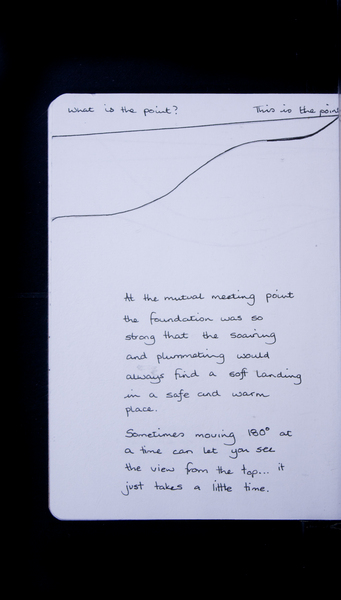 What is the point?
This is the point
At the mutual meeting point
the foundation was so
strong that the soaring
and plummeting would
always find a soft landing
in a safe and warm
place.
Sometimes moving 180° at
a time can let you see
the view from the top... it
just takes a little time.